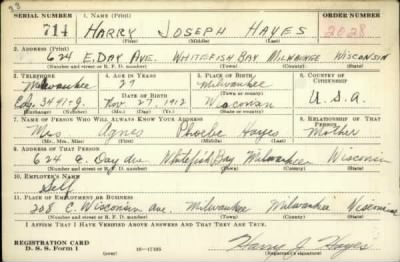 SERIAL NUMBER 1. NAME (Print) ORDER NUMBER
714 HARRY JOSEPH HAYES 2028
(First) (Middle) (Last)
2. ADDRESS (Print)
624 E. DAY AVE. WHITEFISH BAY MILWAUKEE WISCONSIN
(Number and street or R. F. D. number) (Town) (County) (State)
3. TELEPHONE 4. AGE IN YEARS 5. PLACE OF BIRTH 6. COUNTRY OF CITIZENSHIP
Milwaukee 27 Milwaukee
DATE OF BIRTH (Town or county)
Edg. 3441-9. Nov. 27, 1912 Wisconsin U.S.A.
(Exchange) (Number) (Mo.) (Day) (Yr.) (State or country)
7. NAME OF PERSON WHO WILL ALWAYS KNOW YOUR ADDRESS 8. RELATIONSHIP OF THAT PERSON
Mrs Agnes Phoebe Hayes Mother
(Mr., Mrs., Miss) (First) (Middle) (Last)
9. ADDRESS OF THAT PERSON
624 E. Day Ave Whitefish Bay Milwaukee Wisconsin
(Number and street or R. F. D. number) (Town) (County) (State)
10. EMPLOYER'S NAME
Self
11. PLACE OF EMPLOYMENT OR BUSINESS
208 E. Wisconsin Ave. Milwaukee Milwaukee Wisconsin
(Number and street or R. F. D. number) (Town) (County) (State)
I AFFIRM THAT I HAVE VERIFIED ABOVE ANSWERS AND THAT THEY ARE TRUE.
REGISTRATION CARD
D. S. S. Form 1 16-17105 Harry J. Hayes
(Registrant's signature)